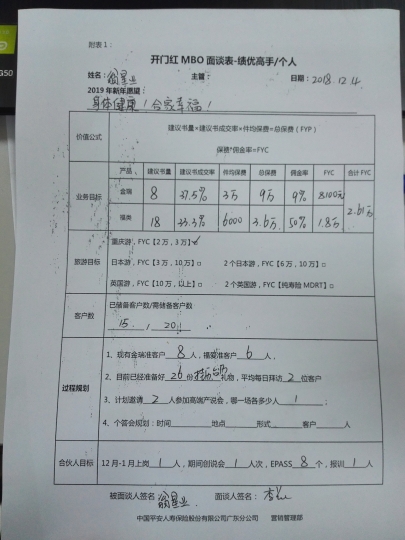 附表1：
开门红MBO面谈表-绩优高手/个人
姓名：翁星业 主管： 日期：2018.12.4
2019年新年愿望：
身体健康！合家幸福！
价值公式
建议书量*建议书成交率*件均保费=总保费（FYP）
保费*佣金率=FYC
业务目标
产品 建议书量 建议书成交率 件均保费 总保费 佣金率 FYC 合计FYC
金瑞 8 37.5% 3万 9万 9% 8100元 2.61万
福类 18 33.3% 6000 3.6万 50% 1.8万
旅游目标
重庆游，FYC【2万，3万】✓
日本游，FYC【3万，10万】□ 2个日本游，FYC【6万，10万】□
英国游，FYC【10万，以上】□ 2个英国游，FYC【纯寿险MDRT】□
客户数
已储备客户数/需储备客户数
15 / 20
过程规划
1、现有金瑞准客户 8 人，福类准客户 6 人，
2、目前已经准备好 26 份 礼物，平均每日拜访 2 位客户
3、计划邀请 2 人参加高端产说会，哪一场各多少人 1；
4、个答会规划：时间 地点 形式 客户 人
合伙人目标
12月-1月上岗 1 人，期间创说会 1 人次，EPASS 8 个，报训 1 人
被面谈人签名：翁星业 面谈人签名：
中国平安人寿保险股份有限公司广东分公司 营销管理部